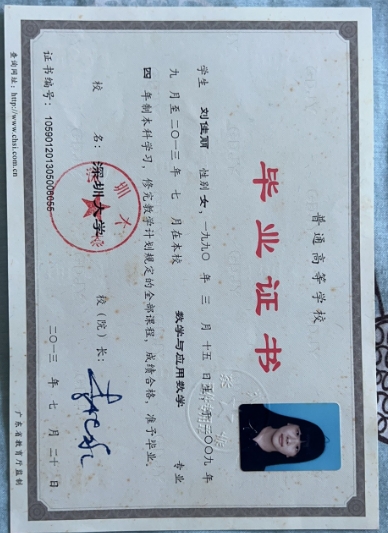 普通高等学校
毕业证书
学生 刘佳丽 性别 女,一九九〇年 三 月 十五 日生,于二〇〇九年
九 月至二〇一三年 七 月在本校 数学与应用数学 专业
四 年制本科学习,修完教学计划规定的全部课程,成绩合格,准予毕业。
校 名:深圳大学
校(院)长:
证书编号:105901201305006655
二〇一三 年 七 月 二十 日
查询网址:http://www.chsi.com.cn
广东省教育厅监制